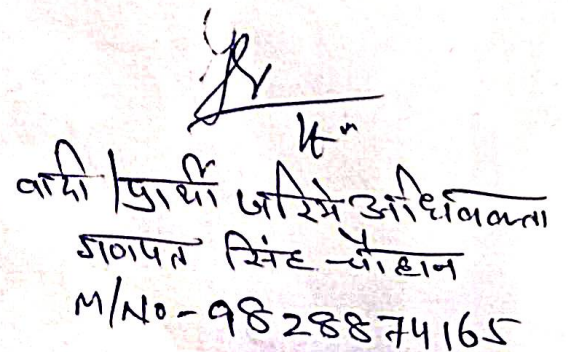 वादी/प्रार्थी जरिये अधिवक्ता
गणपत सिंह चौहान
M/No-9828874165